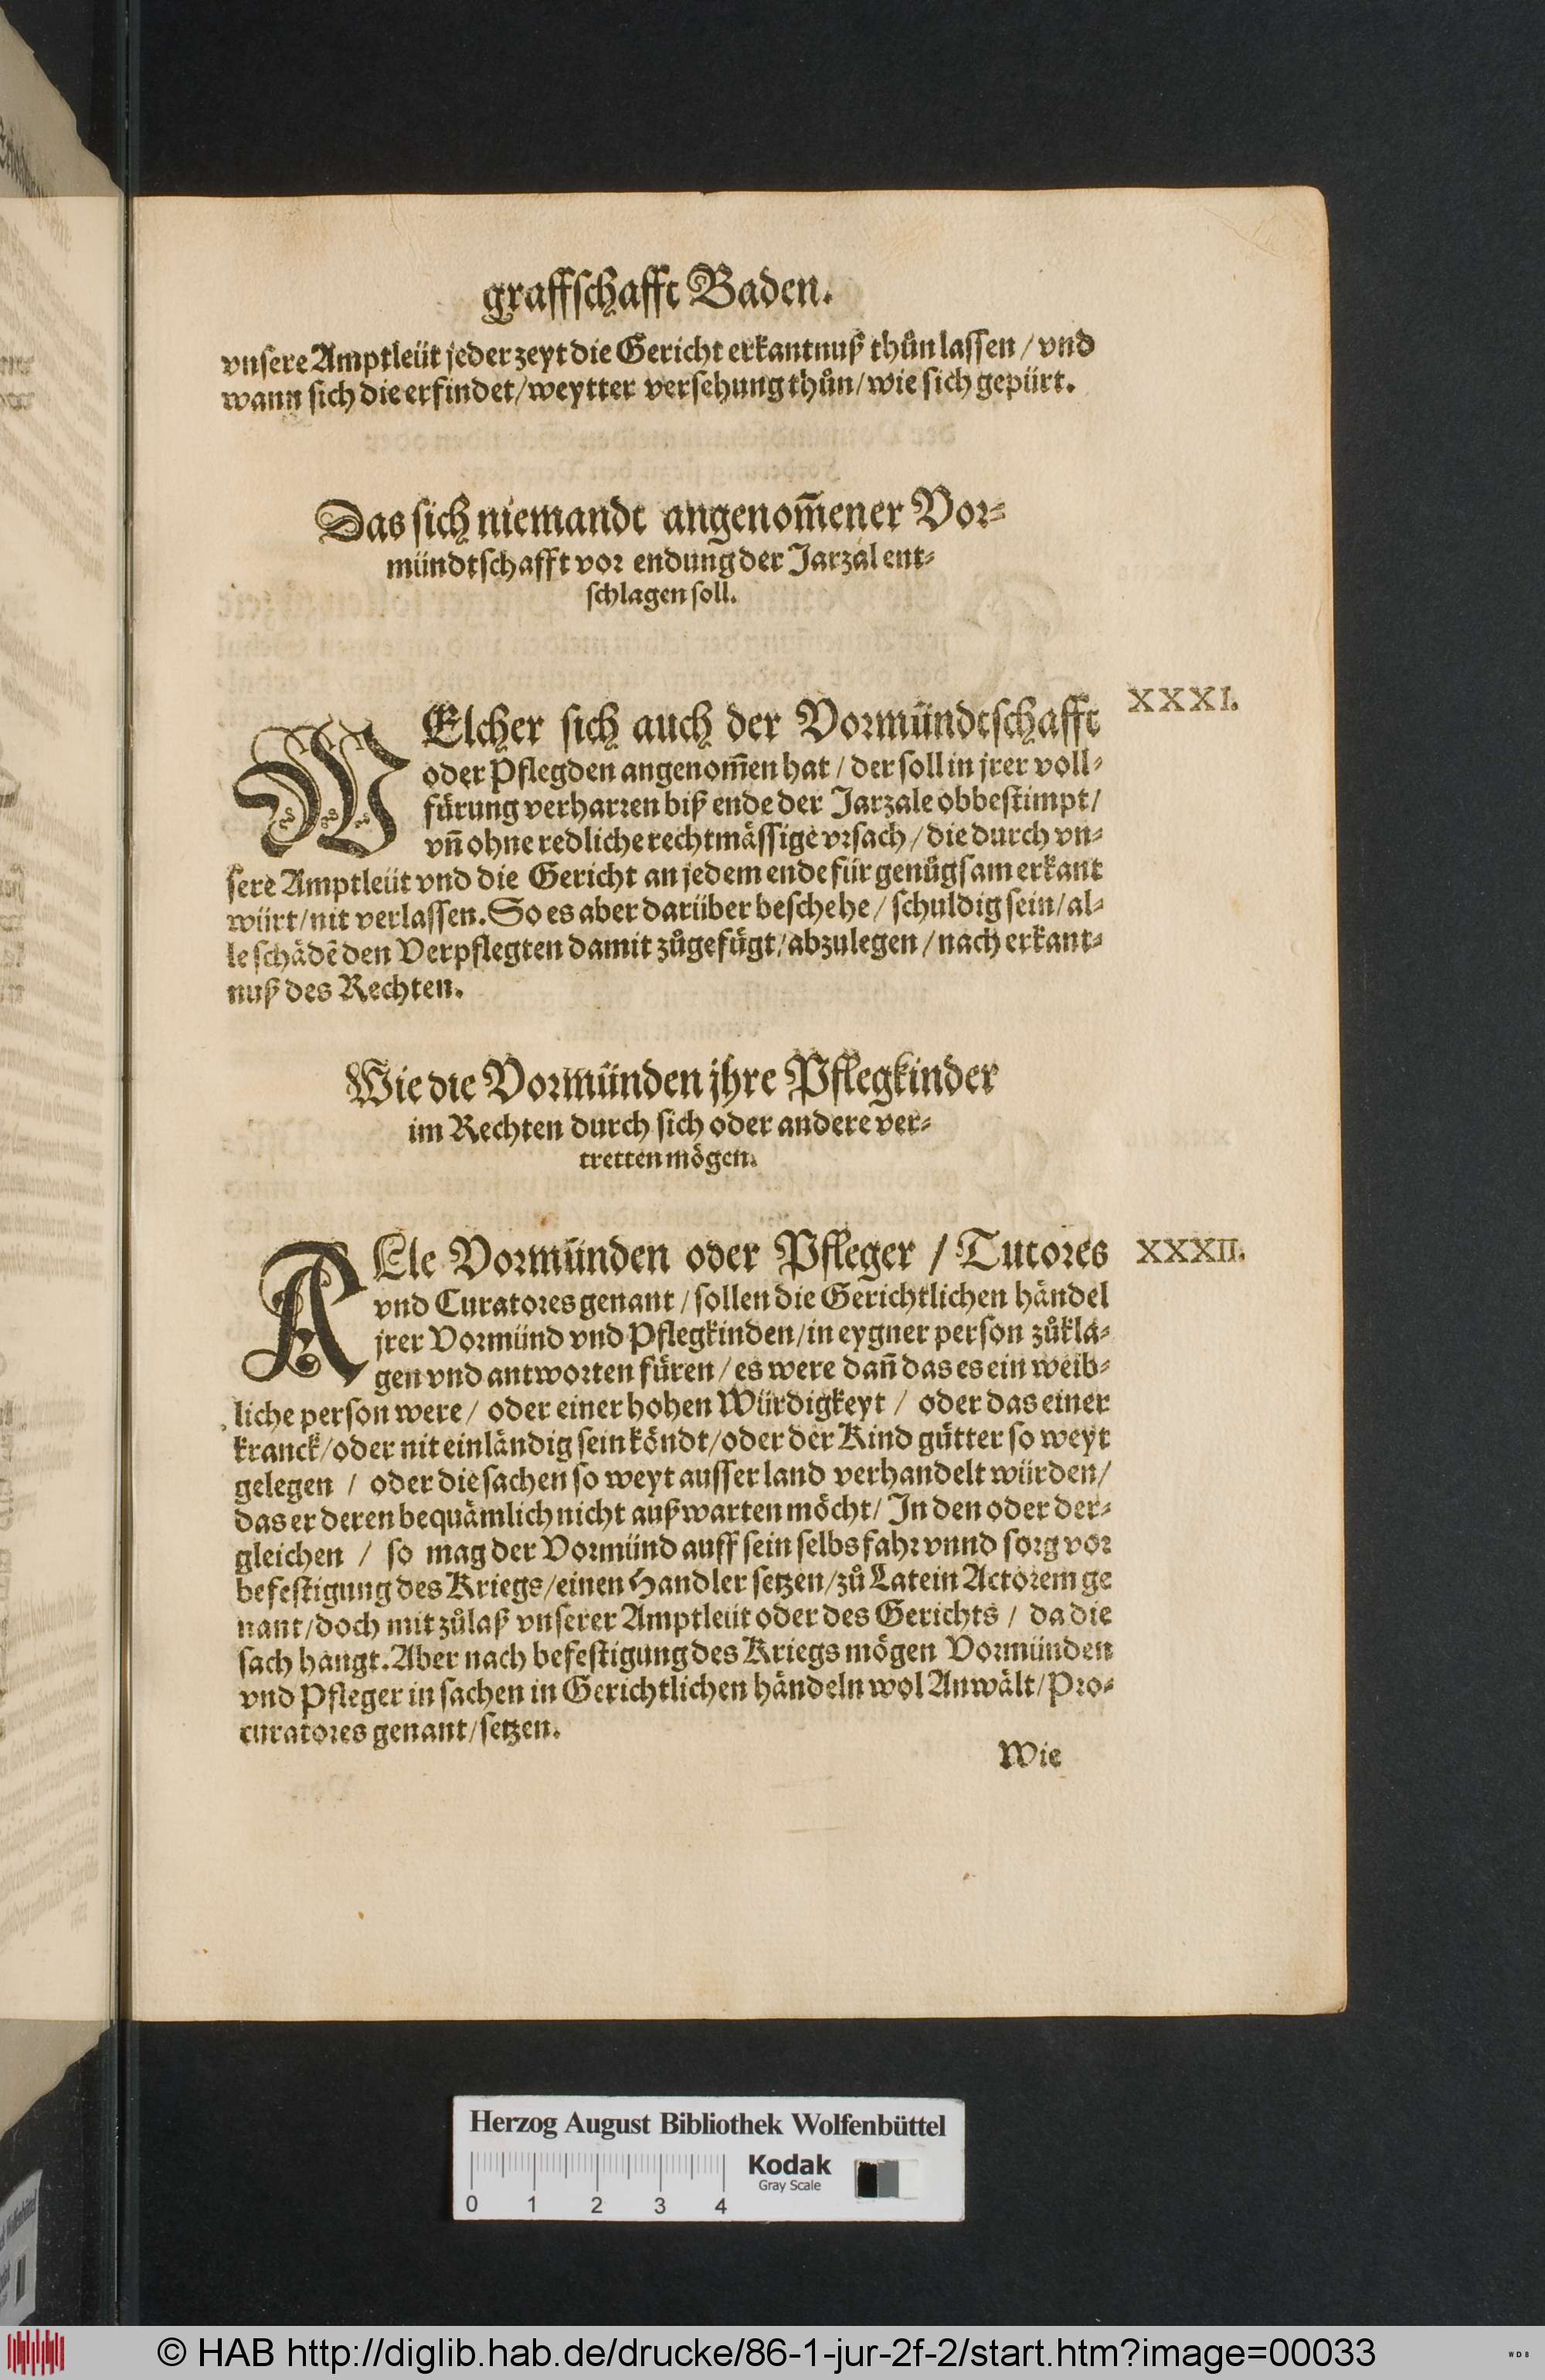 graffschafft Baden.
vnsere Amptleüt jeder zeyt die Gericht erkantnuß thůn lassen / vnd
wann sich die erfindet / weytter versehung thůn / wie sich gepürt.
Das sich niemandt angenom̃ener Vor⸗
mündtschafft vor endung der Jarzal ent⸗
schlagen soll.
XXXI.
WElcher sich auch der Vormündtschafft
oder Pflegden angenom̃en hat / der soll in jrer voll⸗
fürung verharren biß ende der Jarzale obbestimpt /
vñ ohne redliche rechtmässige vrsach / die durch vn⸗
sere Amptleüt vnd die Gericht an jedem ende für genůgsam erkant
würt / nit verlassen. So es aber darüber beschehe / schuldig sein / al⸗
le schädẽ den Verpflegten damit zůgefügt / abzulegen / nach erkant⸗
nuß des Rechten.
Wie die Vormünden jhre Pflegkinder
im Rechten durch sich oder andere ver⸗
tretten mögen.
XXXII.
ALle Vormünden oder Pfleger / Tutores
vnd Curatores genant / sollen die Gerichtlichen händel
jrer Vormünd vnd Pflegkinden / in eygner person zůkla⸗
gen vnd antworten füren / es were dañ das es ein weib⸗
liche person were / oder einer hohen Würdigkeyt / oder das einer
kranck / oder nit einländig sein köndt / oder der Kind gütter so weyt
gelegen / oder die sachen so weyt ausser land verhandelt würden /
das er deren bequämlich nicht außwarten möcht / In den oder der⸗
gleichen / so mag der Vormünd auff sein selbs fahr vnnd sorg vor
befestigung des Kriegs / einen Handler setzen / zů Latein Actorem ge
nant / doch mit zůlaß vnserer Amptleüt oder des Gerichts / da die
sach hangt. Aber nach befestigung des Kriegs mögen Vormünden
vnd Pfleger in sachen in Gerichtlichen händeln wol Anwält / Pro⸗
curatores genant / setzen.
Wie
Herzog August Bibliothek Wolfenbüttel
Kodak
Gray Scale
0 1 2 3 4
© HAB http://diglib.hab.de/drucke/86-1-jur-2f-2/start.htm?image=00033